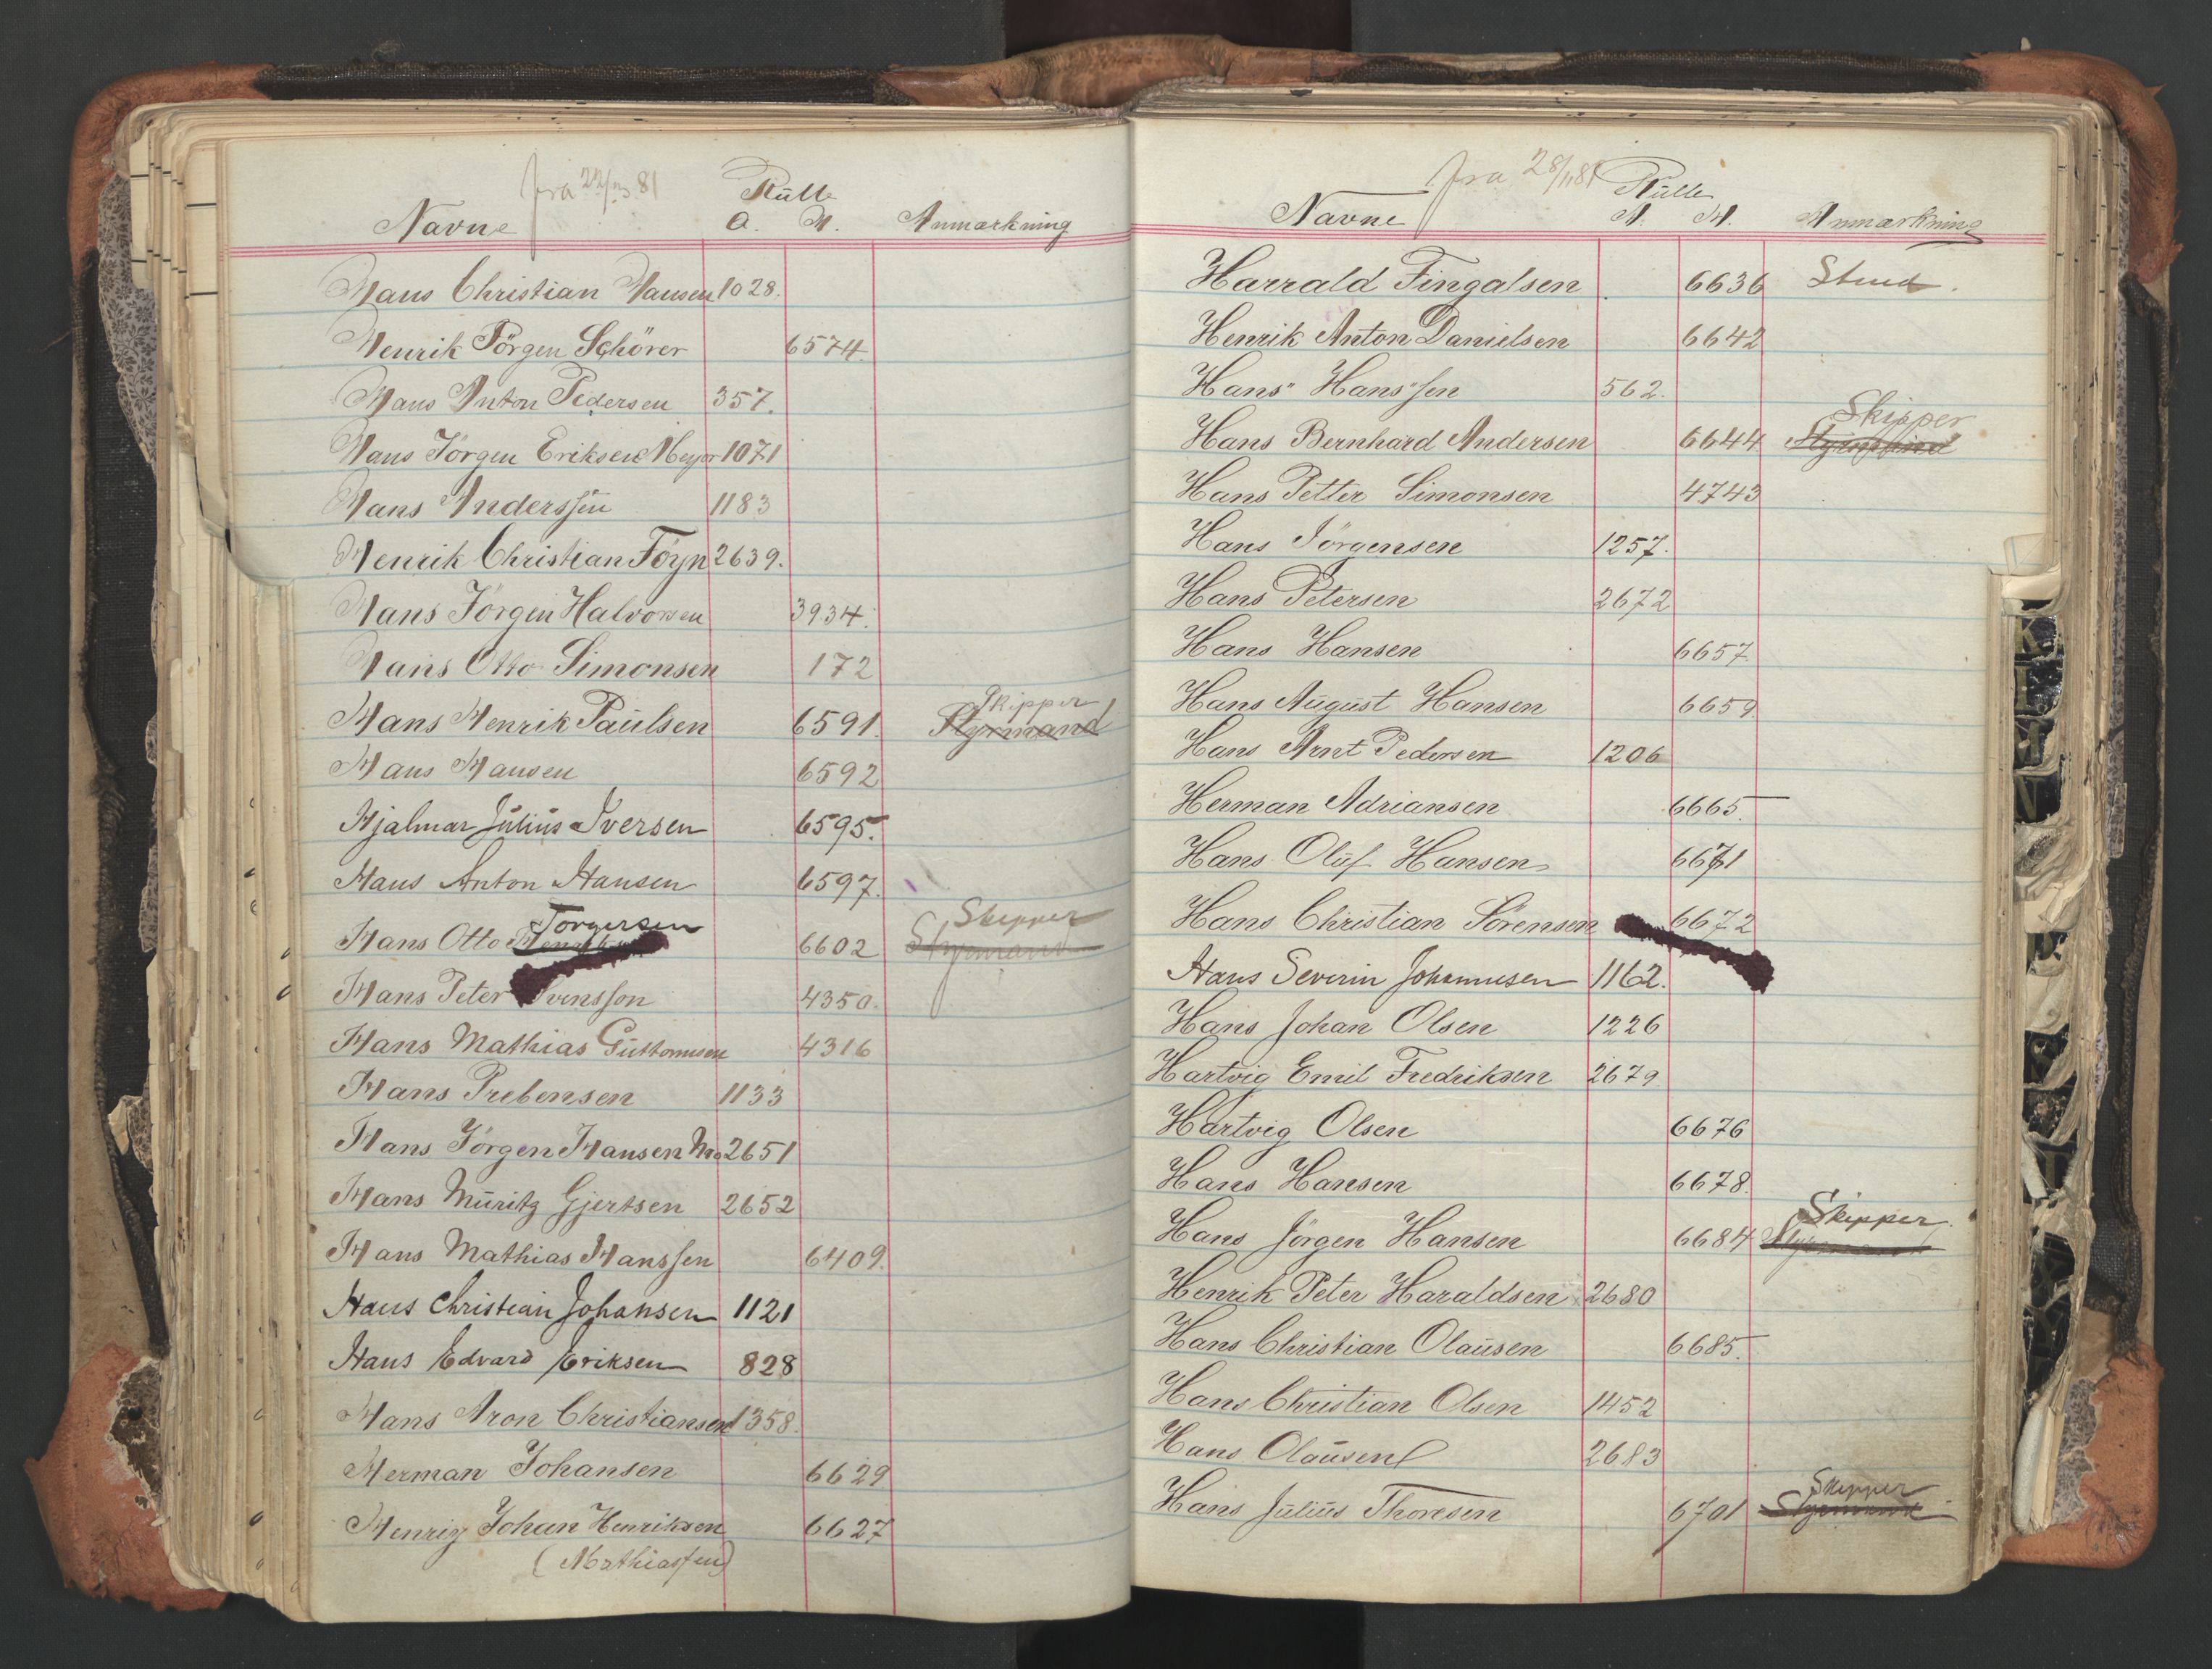 fra 22/3 81
Rulle
Navne A. H. Anmærkning
Hans Christian Hansen 1028.
Henrik Jörgen Schörer 6574
Hans Anton Pedersen 357.
Hans Jörgen Eriksen Meyer 1071
Hans Anderssen 1183
Henrik Christian Foyn 2639.
Hans Jörgen Halvorsen 3934.
Hans Otto Simonsen 172
Skipper
Hans Henrik Paulsen 6591. Styrmand
Hans Hansen 6592
Hjalmar Julius Iversen 6595.
Hans Anton Hansen 6597.
Torgersen Skipper
Hans Otto 6602 Styrmand
Hans Peter Svensson 4350.
Hans Mathias Guttormsen 4316
Hans Prebensen 1133
Hans Jörgen Hansen Mo 2651
Hans Muritz Gjertsen 2652
Hans Mathias Hanssen 6409.
Hans Christian Johansen 1121
Hans Edvard Eriksen 828
Hans Aron Christiansen 1358.
Herman Johansen 6629
Henrig Johan Henriksen 6627
(Mathiassen)
fra 28/11 81
Rulle
Navne A. H. Anmærkning
Harrald Fingalsen 6636 Stued.
Henrik Anton Danielsen 6642
Hans" Hans"sen 562.
Skipper
Hans Bernhard Andersen 6644. Styrmand
Hans Petter Simonsen 4743
Hans Jörgensen 1257.
Hans Petersen 2672
Hans Hansen 6657
Hans August Hansen 6659.
Hans Arnt Pedersen 1206
Herman Adriansen 6665.
Hans Oluf Hansen 6671
Hans Christian Sörensen 6672
Hans Severin Johannesen 1162.
Hans Johan Olsen 1226
Hartvig Emil Fredriksen 2679
Hartvig Olsen 6676
Hans Hansen 6678.
Skipper.
Hans Jörgen Hansen 6684 Styrmand
Henrik Peter Haraldsen 2680
Hans Christian Olausen 6685.
Hans Christian Olsen 1452
Hans Olausen 2683
Skipper
Hans Julius Thoresen 6701 Styrmand